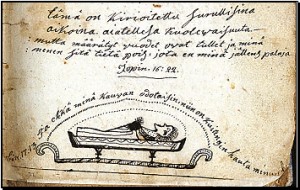 tämä on kirioitettu surullisina
aikoina. aiatellesa kuolewaisuuta.
mutta määrätyt vuodet ovat tullet ja minä
menen sitä tietä pois, jota en minä jällens palaja
Jopin: 16: 22.
Ja ehkä minä kauvan odotaisin niin on kuitengin hauta
17:13